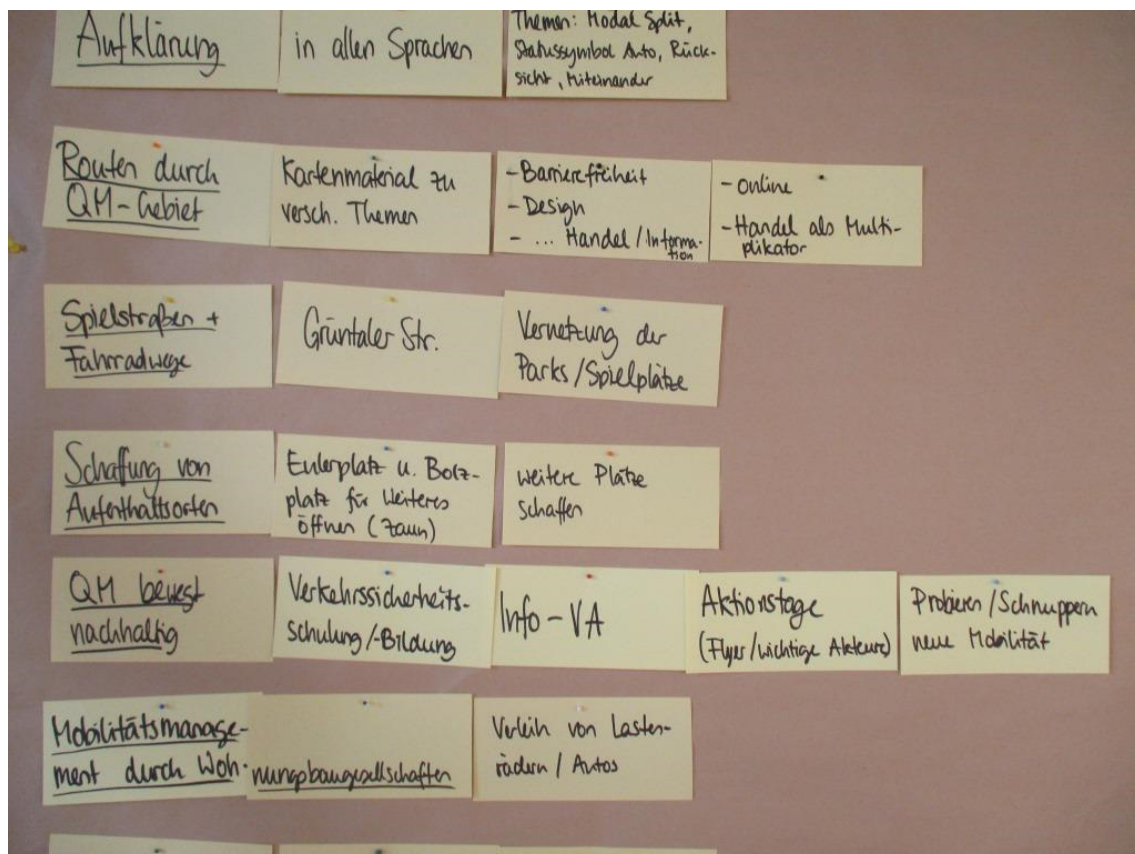 Aufklärung
in allen Sprachen
Themen: Modal Split,
Statussymbol Auto, Rück-
sicht, Miteinander
Routen durch
QM-Gebiet
Kartenmaterial zu
versch. Themen
- Barrierefreiheit
- Design
- ... Handel / Informa-
tion
- online
- Handel als Multi-
plikator
Spielstraßen +
Fahrradwege
Grüntaler Str.
Vernetzung der
Parks / Spielplätze
Schaffung von
Aufenthaltsorten
Eulerplatz u. Bolz-
platz für Weiteres
öffnen (Zaun)
weitere Plätze
schaffen
QM bewegt
nachhaltig
Verkehrssicherheits-
schulung /-Bildung
Info-VA
Aktionstage
(Flyer / wichtige Akteure)
Probieren / Schnuppern
neue Mobilität
Mobilitätsmanage-
ment durch Woh-
nungsbaugesellschaften
Verleih von Lasten-
rädern / Autos